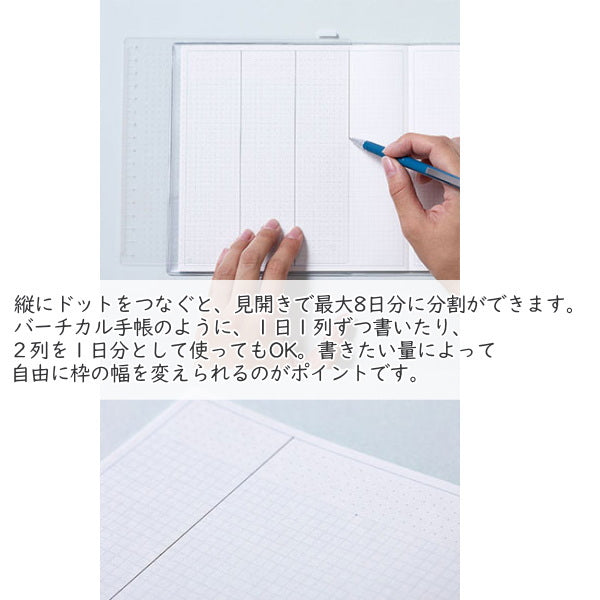 縦にドットをつなぐと、見開きで最大8日分に分割ができます。
バーチカル手帳のように、1日1列ずつ書いたり、
2列を1日分として使ってもOK。書きたい量によって
自由に枠の幅を変えられるのがポイントです。